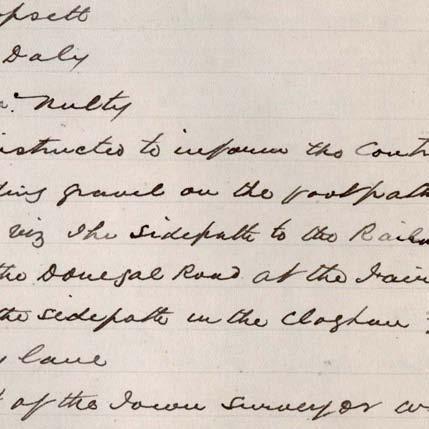 Daly
Nulty
instructed to inform the Contr
gravel on the footpath
viz The sidepath to the Railw
the Donegal Road at the Fair
the sidepath in the Cloghan
lane
of the Town Surveyor